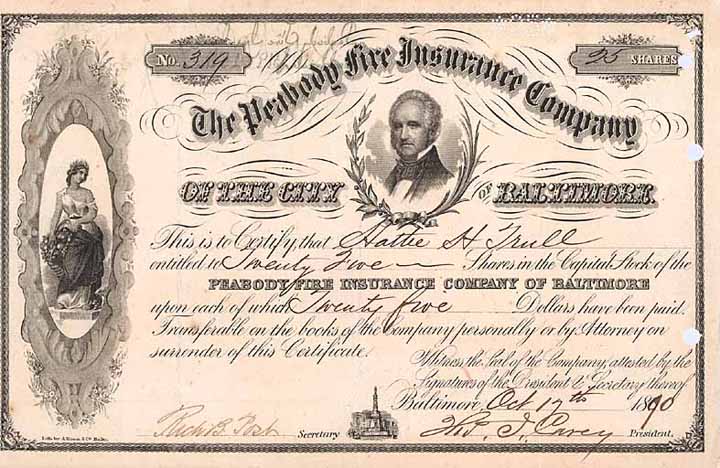 No. 319
25 SHARES
The Peabody Fire Insurance Company
OF THE CITY OF BALTIMORE
This is to Certify, that Hattie H Trull
entitled to Twenty Five Shares in the Capital Stock of the
PEABODY FIRE INSURANCE COMPANY OF BALTIMORE
upon each of which Twenty five Dollars have been paid.
Transferable on the books of the Company personally or by Attorney on
surrender of this Certificate.
Witness the Seal of the Company, attested by the
Signatures of the President & Secretary thereof
Baltimore Oct 17th 1890
Richd B. Post Secretary Thos. I. Carey President.